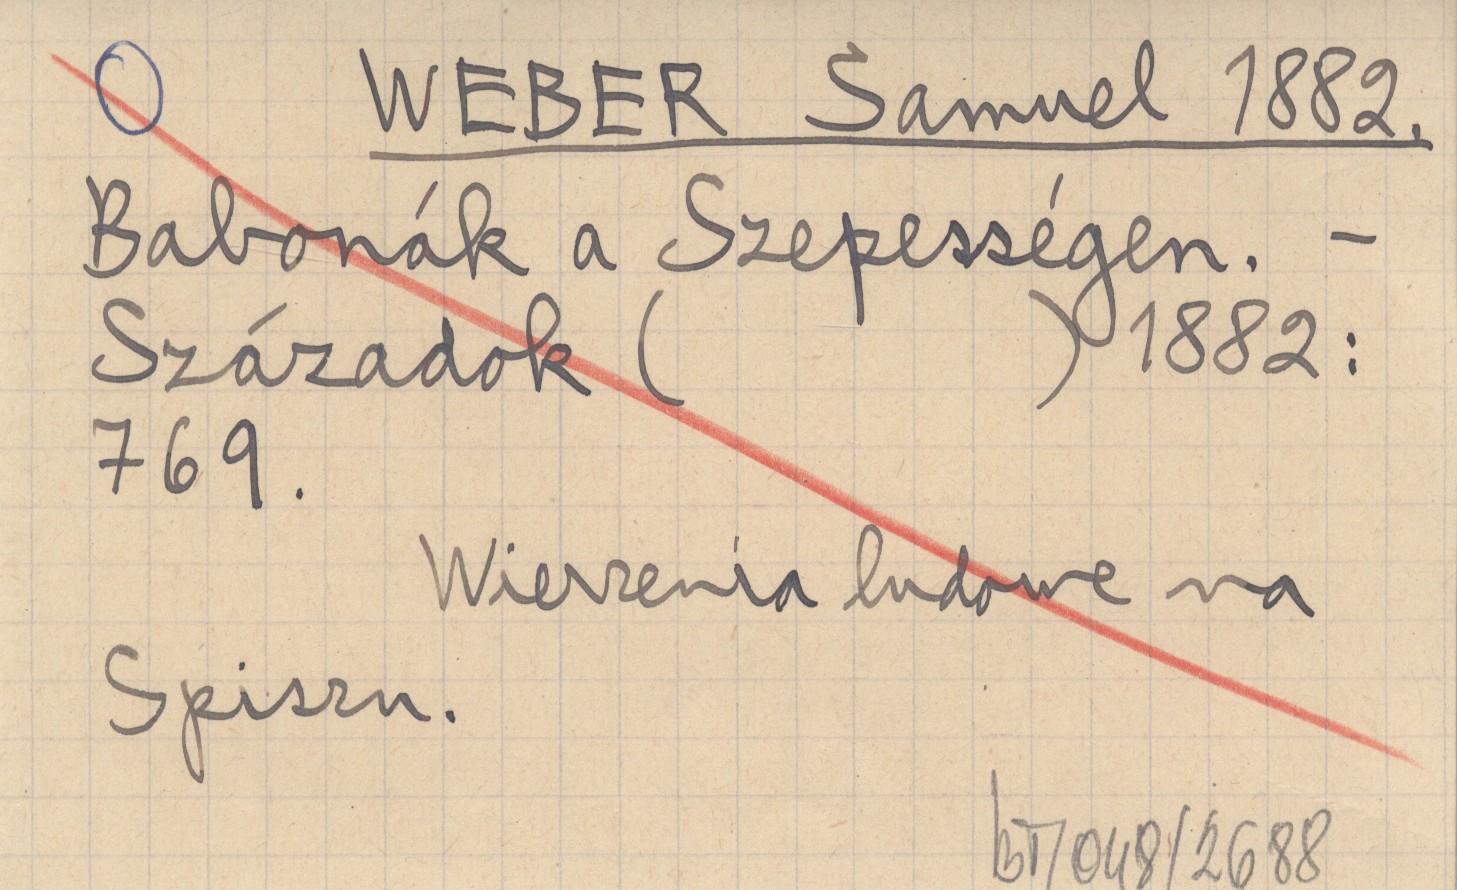 WEBER Samuel 1882.
Babonák a Szepességen. –
Századok (           ) 1882:
769.
Wierzenia ludowe na
Spiszu.
bT/048/2688